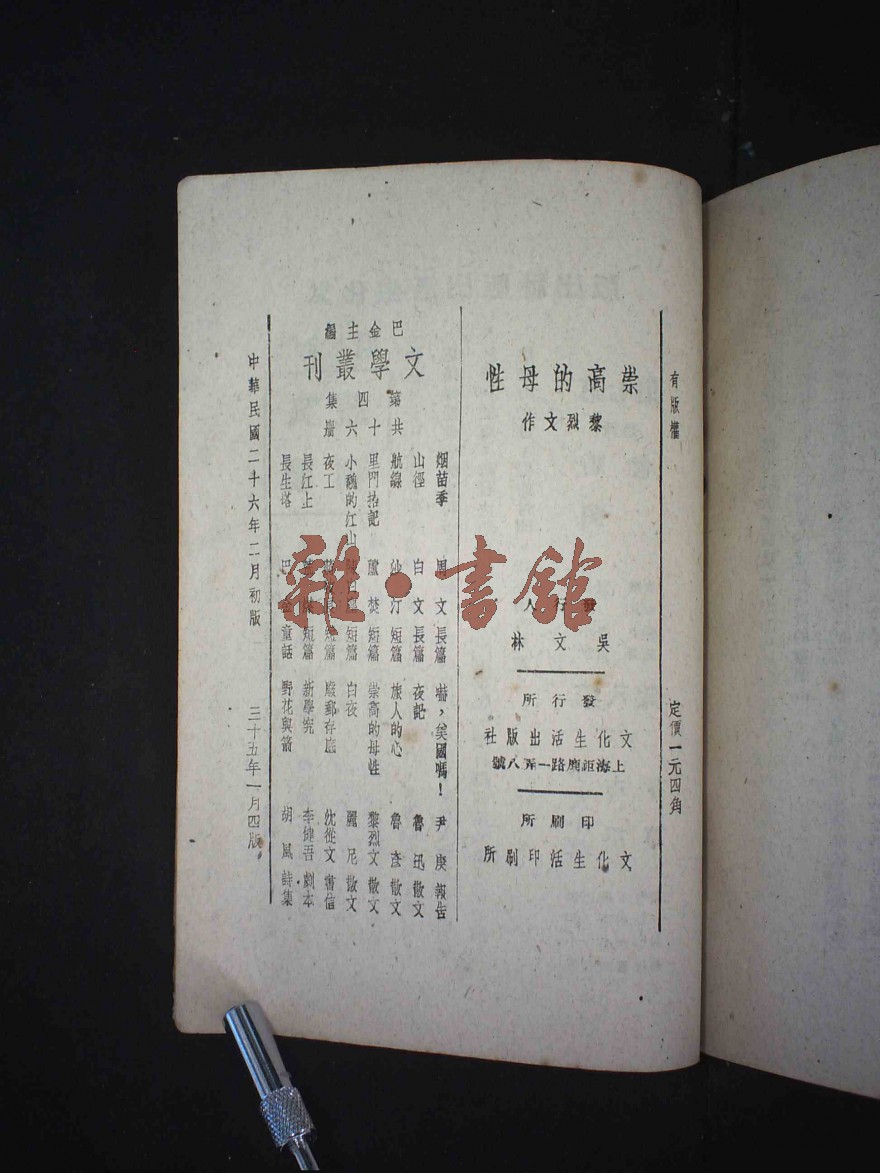 有版權 定價一元四角
崇高的母性
黎烈文作
發行人
吳文林
發行所
文化生活出版社
上海鉅鹿路一弄八號
印刷所
文化生活印刷所
巴金主編
文學叢刊
第四集
共十六册
烟苗季 周文 長篇 嚇,美國嗎! 尹庚 報告
山徑 白文 長篇 夜記 魯迅 散文
航線 沙汀 短篇 旅人的心 魯彥 散文
里門拾記 蘆焚 短篇 崇高的母性 黎烈文 散文
小魏的江山 陳白塵 短篇 白夜 麗尼 散文
夜工 短篇 廢郵存底 沈從文 書信
長江上 荒煤 短篇 新學究 李健吾 劇本
長生塔 巴金 童話 野花與箭 胡風 詩集
中華民國二十六年二月初版 三十五年一月四版
雜·書館